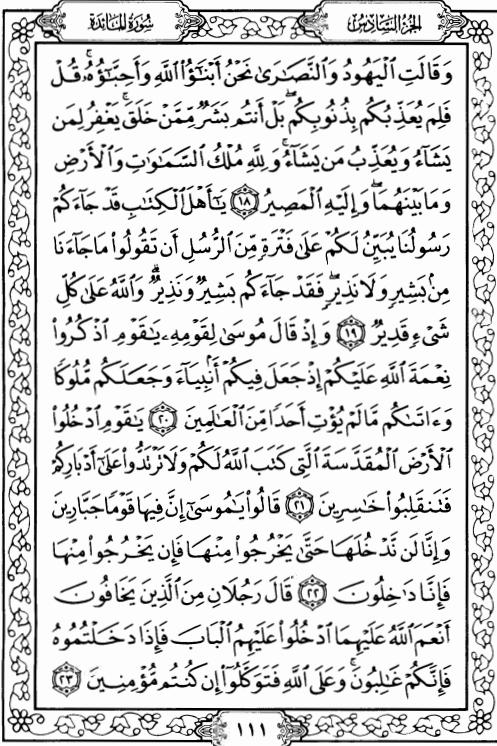 الجزء السادس
سورة المائدة
وَقَالَتِ الْيَهُودُ وَالنَّصَارَىٰ نَحْنُ أَبْنَاؤُا اللَّهِ وَأَحِبَّاؤُهُۥ ۚ قُلْ
فَلِمَ يُعَذِّبُكُم بِذُنُوبِكُم ۖ بَلْ أَنتُم بَشَرٌ مِّمَّنْ خَلَقَ ۚ يَغْفِرُ لِمَن
يَشَاءُ وَيُعَذِّبُ مَن يَشَاءُ ۚ وَلِلَّهِ مُلْكُ السَّمَاوَاتِ وَالْأَرْضِ
وَمَا بَيْنَهُمَا ۖ وَإِلَيْهِ الْمَصِيرُ ١٨ يَا أَهْلَ الْكِتَابِ قَدْ جَاءَكُمْ
رَسُولُنَا يُبَيِّنُ لَكُمْ عَلَىٰ فَتْرَةٍ مِّنَ الرُّسُلِ أَن تَقُولُوا مَا جَاءَنَا
مِن بَشِيرٍ وَلَا نَذِيرٍ ۖ فَقَدْ جَاءَكُم بَشِيرٌ وَنَذِيرٌ ۗ وَاللَّهُ عَلَىٰ كُلِّ
شَيْءٍ قَدِيرٌ ١٩ وَإِذْ قَالَ مُوسَىٰ لِقَوْمِهِۦ يَا قَوْمِ اذْكُرُوا
نِعْمَةَ اللَّهِ عَلَيْكُمْ إِذْ جَعَلَ فِيكُمْ أَنبِيَاءَ وَجَعَلَكُم مُّلُوكًا
وَءَاتَىٰكُم مَّا لَمْ يُؤْتِ أَحَدًا مِّنَ الْعَالَمِينَ ٢٠ يَا قَوْمِ ادْخُلُوا
الْأَرْضَ الْمُقَدَّسَةَ الَّتِي كَتَبَ اللَّهُ لَكُمْ وَلَا تَرْتَدُّوا عَلَىٰ أَدْبَارِكُمْ
فَتَنقَلِبُوا خَاسِرِينَ ٢١ قَالُوا يَا مُوسَىٰ إِنَّ فِيهَا قَوْمًا جَبَّارِينَ
وَإِنَّا لَن نَّدْخُلَهَا حَتَّىٰ يَخْرُجُوا مِنْهَا فَإِن يَخْرُجُوا مِنْهَا
فَإِنَّا دَاخِلُونَ ٢٢ قَالَ رَجُلَانِ مِنَ الَّذِينَ يَخَافُونَ
أَنْعَمَ اللَّهُ عَلَيْهِمَا ادْخُلُوا عَلَيْهِمُ الْبَابَ فَإِذَا دَخَلْتُمُوهُ
فَإِنَّكُمْ غَالِبُونَ ۚ وَعَلَى اللَّهِ فَتَوَكَّلُوا إِن كُنتُم مُّؤْمِنِينَ ٢٣
١١١